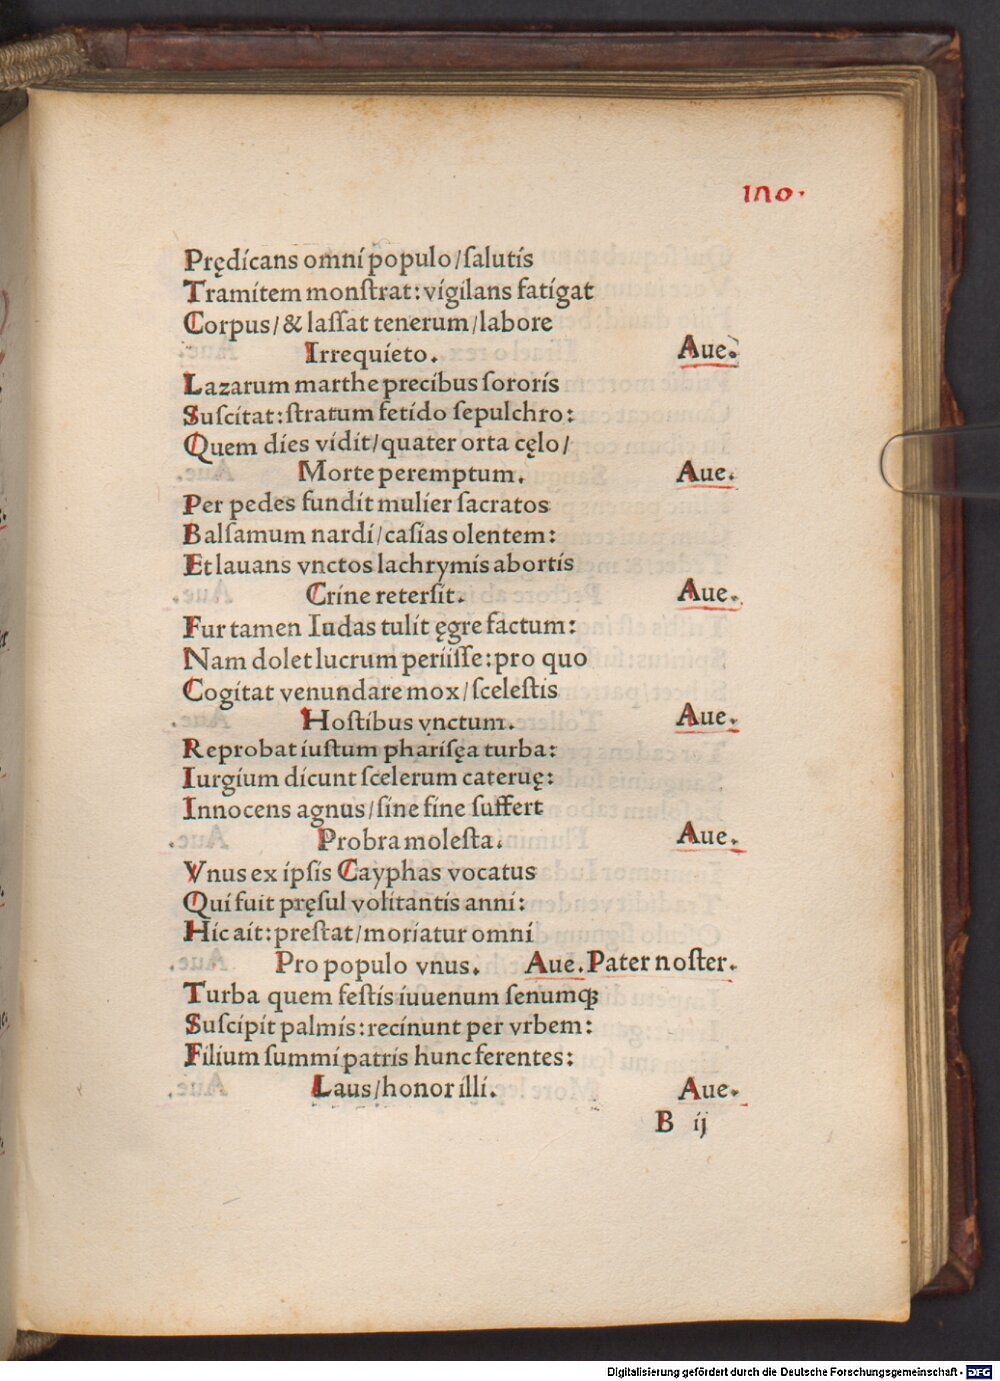 110.
Prędicans omni populo/ſalutis
Tramitem monſtrat: vigilans fatigat
Corpus/& laſſat tenerum/labore
Irrequieto. Aue.
Lazarum marthe precibus ſororis
Suſcitat: ſtratum fetido ſepulchro:
Quem dies vidit/quater orta cęlo/
Morte peremptum. Aue.
Per pedes fundit mulier ſacratos
Balſamum nardi/caſias olentem:
Et lauans vnctos lachrymis abortis
Crine reterſit. Aue.
Fur tamen Iudas tulit ęgre factum:
Nam dolet lucrum periiſſe: pro quo
Cogitat venundare mox/ſceleſtis
Hoſtibus vnctum. Aue.
Reprobat iuſtum phariſęa turba:
Iurgium dicunt ſcelerum cateruę:
Innocens agnus/ſine fine ſuffert
Probra moleſta. Aue.
Vnus ex ipſis Cayphas vocatus
Qui fuit pręſul volitantis anni:
Hic ait: preſtat/moriatur omni
Pro populo vnus. Aue. Pater noſter.
Turba quem feſtis iuuenum ſenumqꝫ
Suſcipit palmis: recinunt per vrbem:
Filium ſummi patris hunc ferentes:
Laus/honor illi. Aue.
B ij
Digitalisierung gefördert durch die Deutsche Forschungsgemeinschaft - DFG